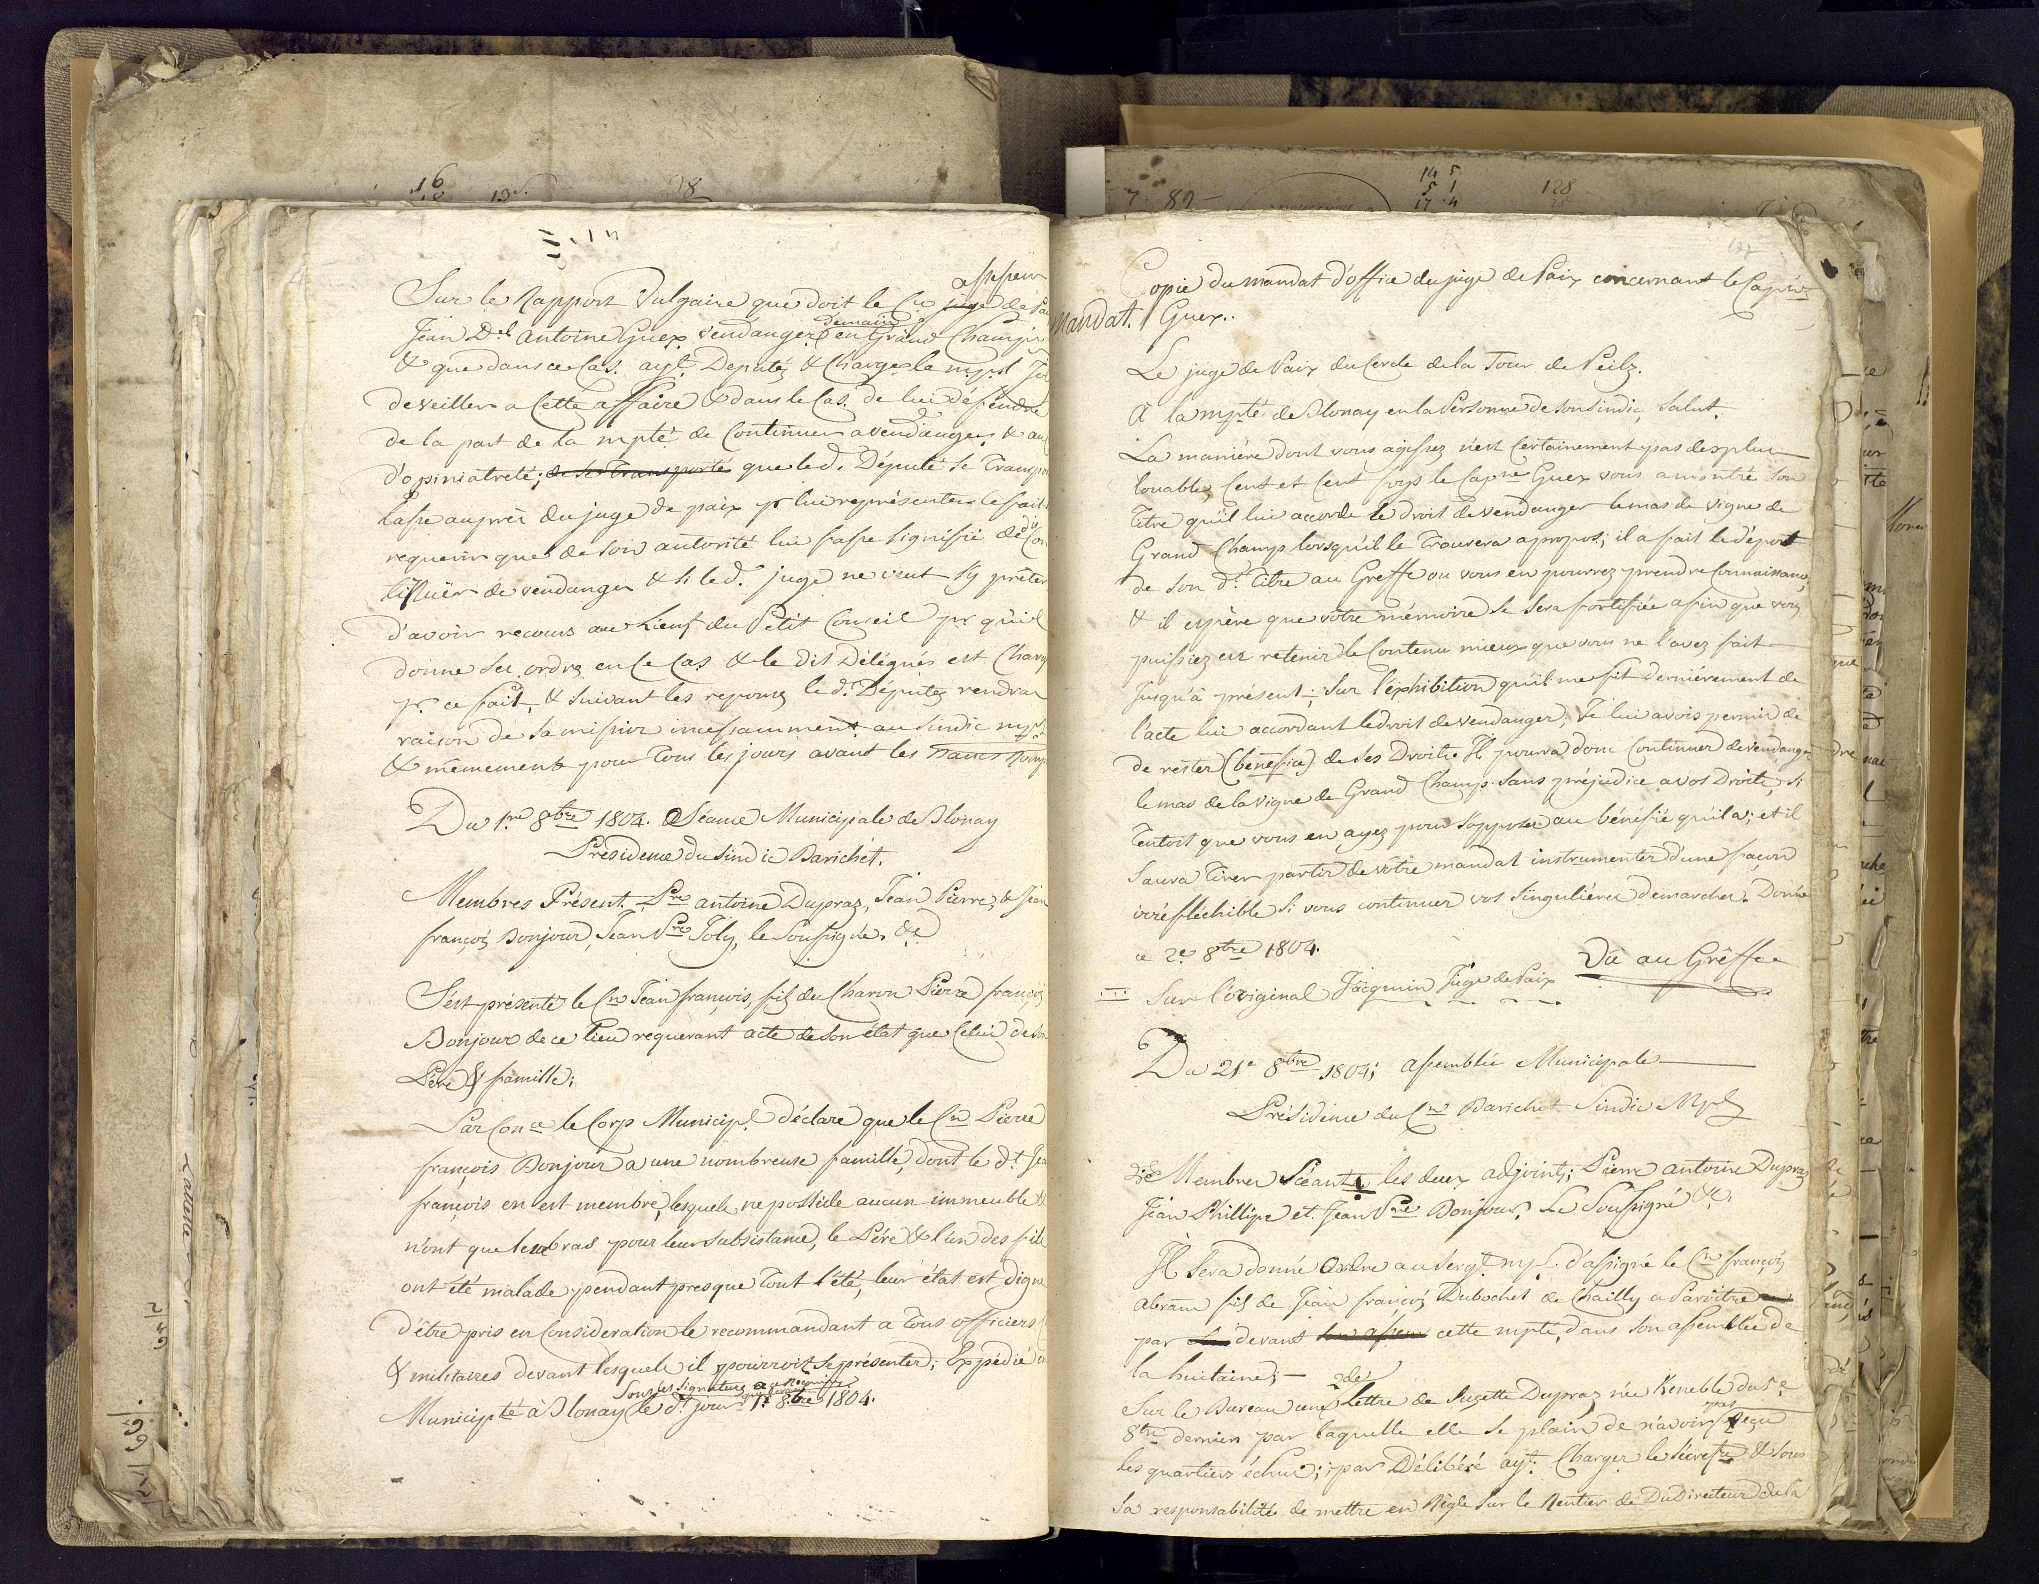 assesseur
Sur le Rapport Vulgaire que doit le Cn juge de Pa
Jean Del Antoine Guex vendanger demain en Grand Champ
& que dans ce Cas. ayt. Deputé & Chargé le mpl
de veiller a Cette affaire & dans le Cas. de lui défendre
de la part de la mpté de Continuer a vendanger, & au
d'opiniatreté; de se transporté que le d. Député se Transpo
lasse auprès du juge de paix pr lui représenter le fait
requerir que de son autorité lui fasse signifié de dis Con
tinuër de vendanger & si le d. juge ne veut s'y prêter
d'avoir recours au Lieut du Petit Conseil pr qu'il
donne ses ordres en Ce Cas & le dit Délégués est Charg
pr. ce fait, & suivant les reponses le d. Députez rendra
raison de sa mission incessamment au sindic mpl
& mêmement pour tous les jours avant les
Du 1re 8bre 1804. Séance Municipale de Blonay
Présidence du Sindic Barichet.
Membres Présent. Pre antoine Dupraz, Jean Pierre, & Jean
françois Bonjour, Jean Pre Joly, le Soussigné. &c
S'est présenté le Cn Jean françois, fils du Charon Pierre françois
Bonjour de ce lieu requerant acte de son état que Celui de son
Père & famille;
Par Con ce le Corp Municipl. déclare que le Cn Pierre
françois Bonjour a une nombreuse famille, dont le dt Jea
françois en est membre, lesquels ne posséde aucun immeuble &
n'ont que leur bras pour leur subsistance, le Père & l'un des fils
ont été malade pendant presque tout l'été, leur état est digne
d'être pris en Consideration le recommandant a Tous officiers
& militaires devant lesquels il pourroit se présenter; Expédié en
Sous les signatures
Municipté à Blonay le dt jour 1r 8bre 1804.
Copie du mandat d'office du juge de Paix concernant le Capne
Mandat. Guex..
Le juge de Paix du Cercle de la Tour de Peilz.
A la mpté de Blonay en la Personne de son Sindic, Salut.
La maniére dont vous agissez n'est Certainement pas des plus
louable, Cent et Cent fois le Capne Guex vous a montré son
Titre qu'il lui accorde le droit de vendanger le mas de vigne de
Grand Champ lorsqu'il le Trouvera apropos; il a fait le dépot
de son d. titre au Greffe ou vous en pourrez prendre Connaissance,
& il espère que votre mémoire se sera fortifiée afin que vous
puissiez en retenir le Contenu mieux que vous ne l'avez fait
Jusqu'à présent; Sur l'exhibition qu'il me fit derniérement de
l'acte lui accordant le droit de vendanger, Je lui avois permis de
de rester (bénéfice) de ses Droits. Il pourra donc Continuer de vendanger
le mas de la vigne de Grand Champ. sans préjudice a vos Droits, si
tentoit que vous en ayez pour s'opposer au bénéfié qu'il a; et il
saura tirer partir de vôtre mandat instrumenter d'une façon
irréfléchible Si vous continuer vos singuliéres demarches. Donné
ce 2e 8bre 1804.
Vû au Grêffe
Sur l'original Jacqmin Juge de Paix
Du 21e 8bre 1804; assemblée Municipale
Présidence du Cn Barichet Sindic Mpl
Membres Séants les deux adjoints; Pierre antoine Dupraz
Jean Phillipe et Jean Pre Bonjour. Le Soussigné &c.
Il Sera donné Ordre au sergt mpl d'assigné le Cn françois
abram fils de Jean françois Dubochet de Chailly a Paroitre
par devant cette mpté, dans son assemblée de
la huitaine;
Sur le Bureau une 2de lettre de Suzette Dupraz née Keneble du 5e
8bre dernier par laquelle elle se plain de n'avoir pas reçu
les quartiers échus; par Délibéré ayt. Charger le secretre & sous
sa responsabilité de mettre en Règle sur le Rentier de Du Directeur de la